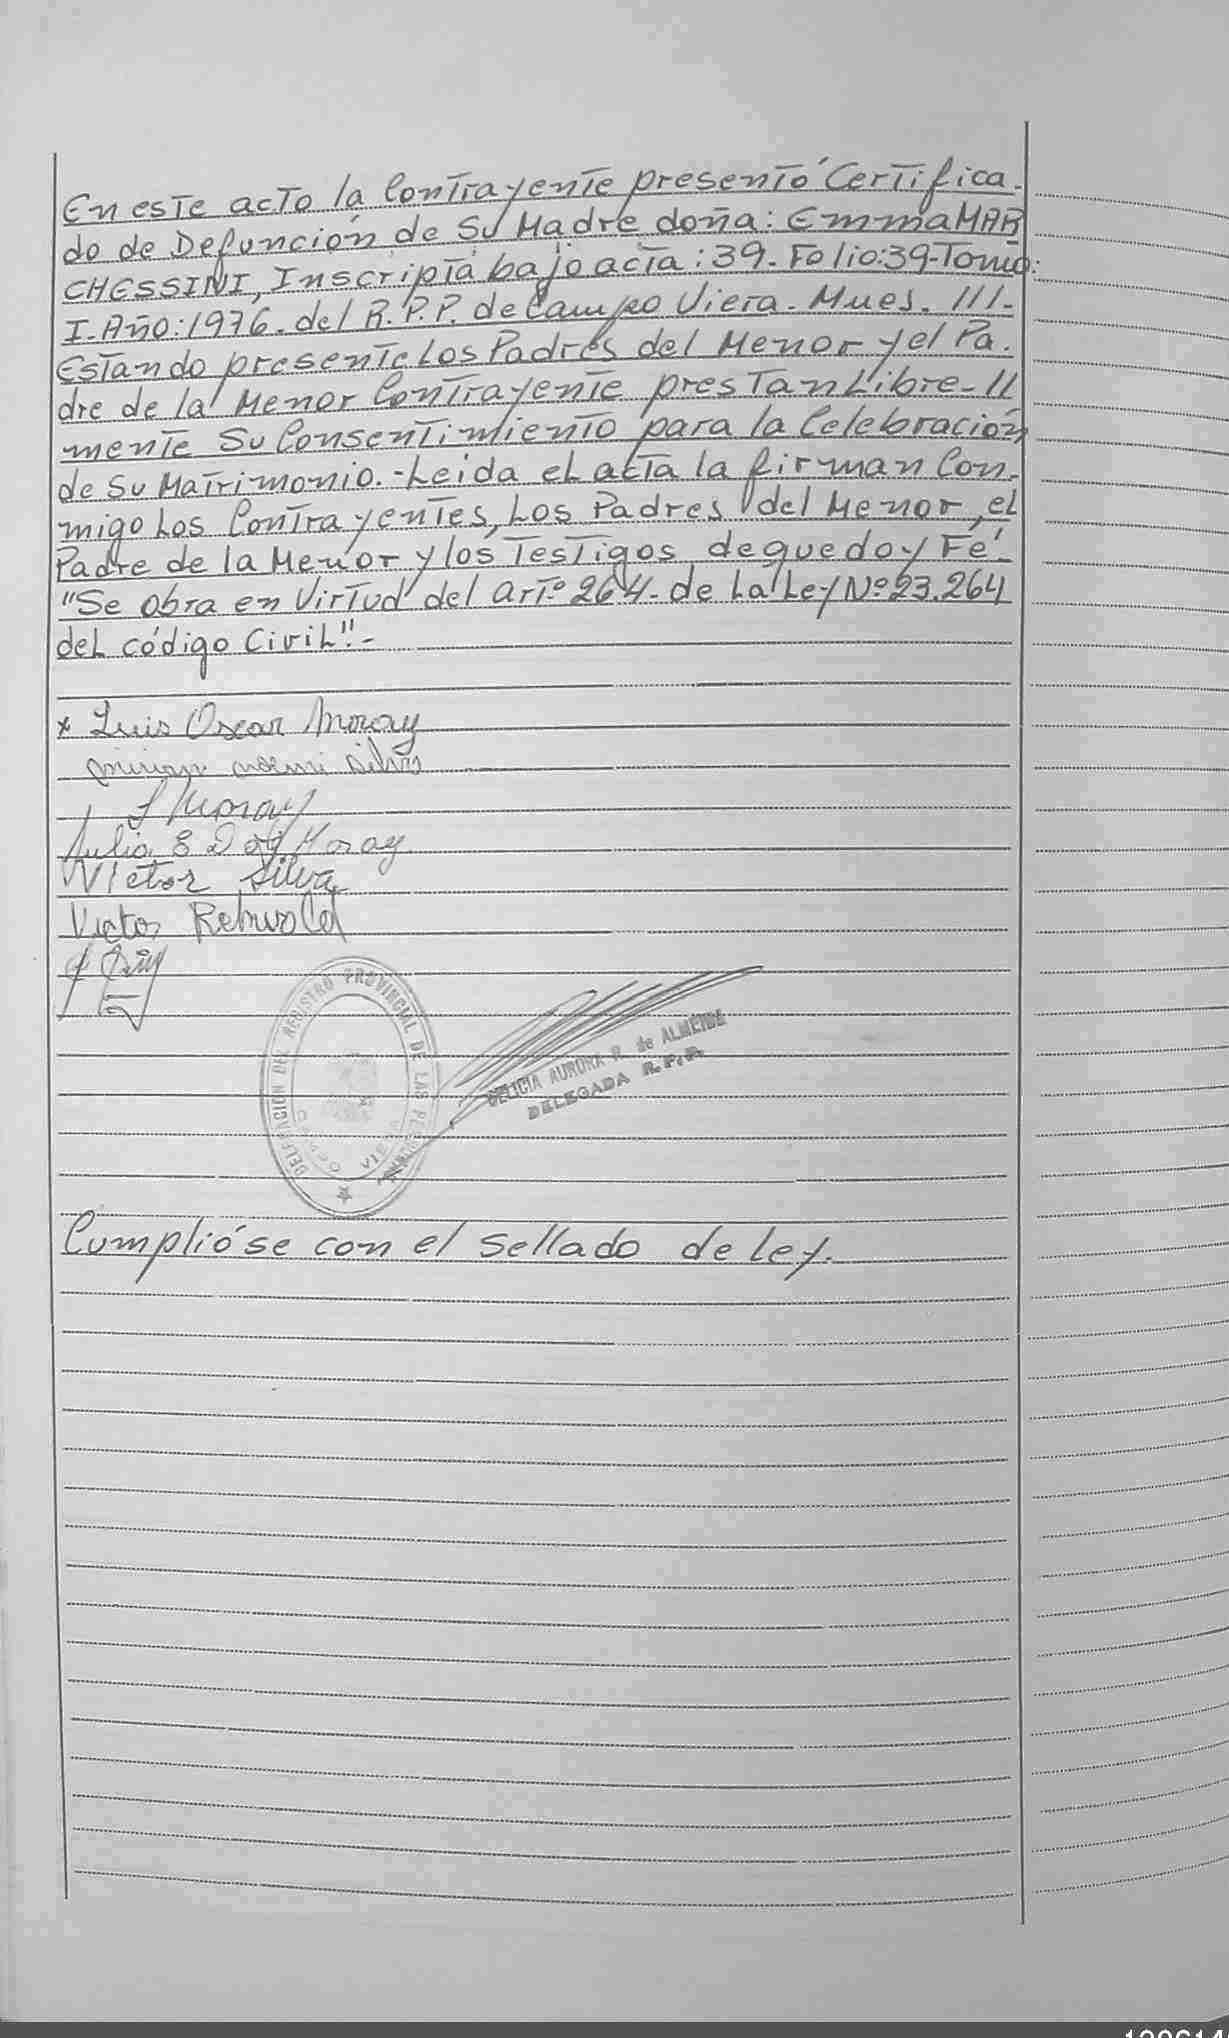 En este acto la Contrayente presentó Certifica-
do de Defunción de Su Madre doña: Emma MAR
CHESSINI, Inscripta bajo acta: 39. Folio: 39-Tomo:
I. Año: 1976. del R.P.P. de Campo Viera. Mues. III.
Estando presente Los Padres del Menor y el Pa.
dre de la Menor Contrayente prestan Libre-//
mente Su Consentimiento para la Celebración
de Su Matrimonio.-Leida el acta la firman Con-
migo Los Contrayentes, Los Padres del Menor, el
Padre de la Menor y los Testigos de que doy Fé.
"Se obra en Virtud del artº 264. de La Ley Nº 23.264
del código Civil".-
x Luis Oscar Moray
Miriam noemi silva
Moray
Julia E D de Moray
Victor Silva
Victor Rehwald
DELEGACION DEL REGISTRO PROVINCIAL DE LAS PERSONAS
CAMPO VIERA
DELICIA AURORA R. de ALMEIDE
DELEGADA R.P.P.
Cumplióse con el sellado de ley.